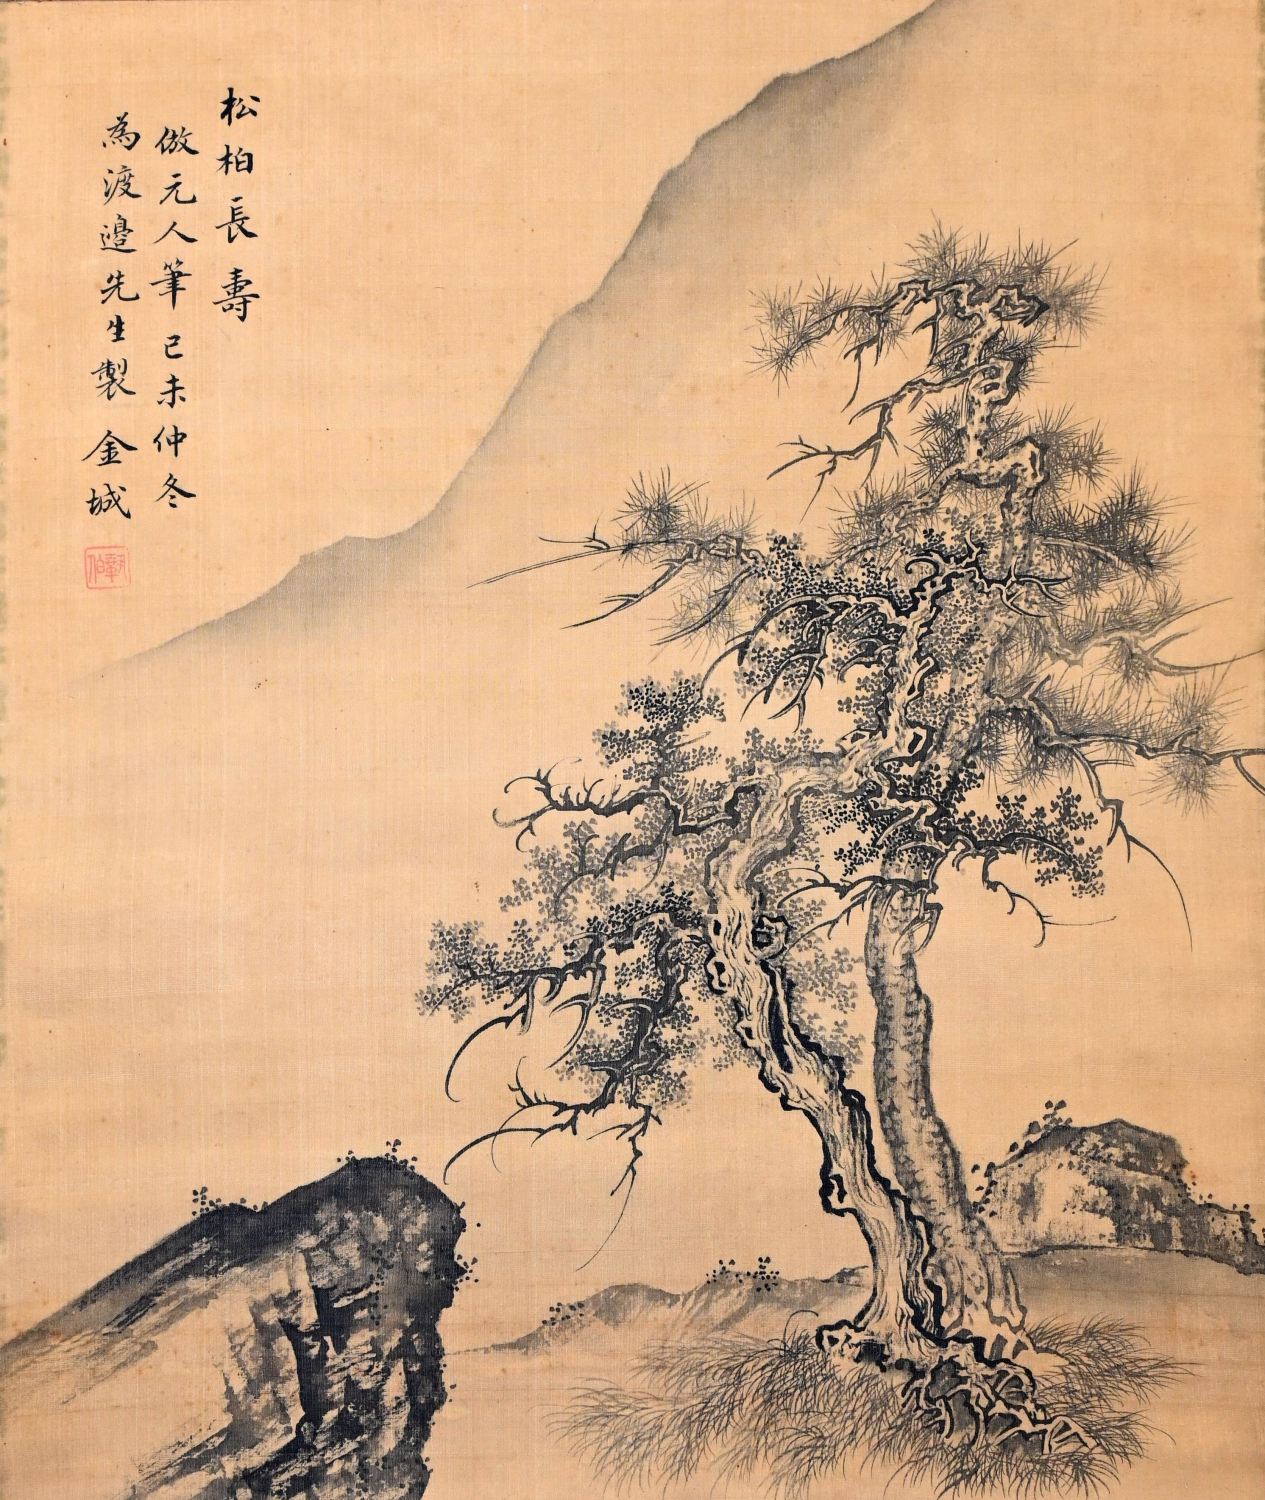 松柏長壽
倣元人筆己未仲冬
為渡邊先生製金城